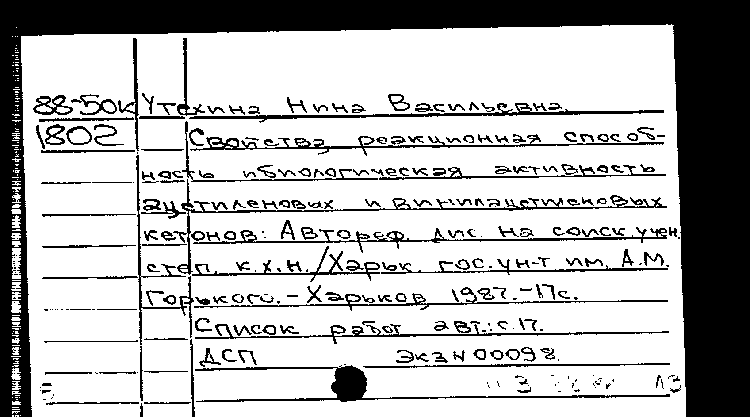 88-50к Утехина, Нина Васильевна.
1802 Свойства, реакционная способ-
ность и биологическая активность
ацетиленовых и винилацетиленовых
кетонов: Автореф. дис. на соиск. учен.
степ. к.х.н. / Харьк. гос. ун-т им. А.М.
Горького. - Харьков, 1987. - 17с.
Список работ авт.: с.17.
ДСП Экз N 00098.